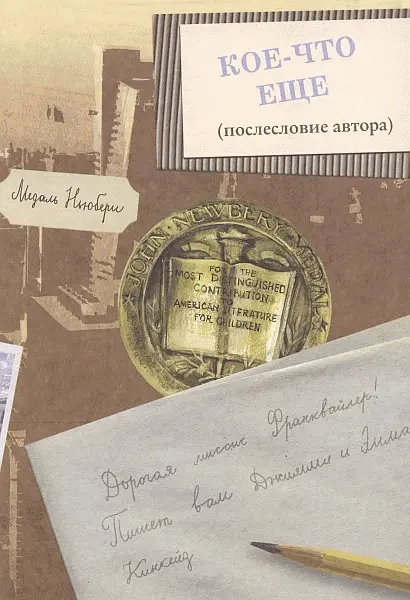 КОЕ-ЧТО
ЕЩЕ
(послесловие автора)
Медаль Ньюбери
JOHN · NEWBERY · MEDAL
FOR THE
MOST DISTINGUISHED
CONTRIBUTION
TO
AMERICAN LITERATURE
FOR CHILDREN
Дорогая миссис Франквайлер!
Пишет вам Джимми и Эмма
Кинкейд